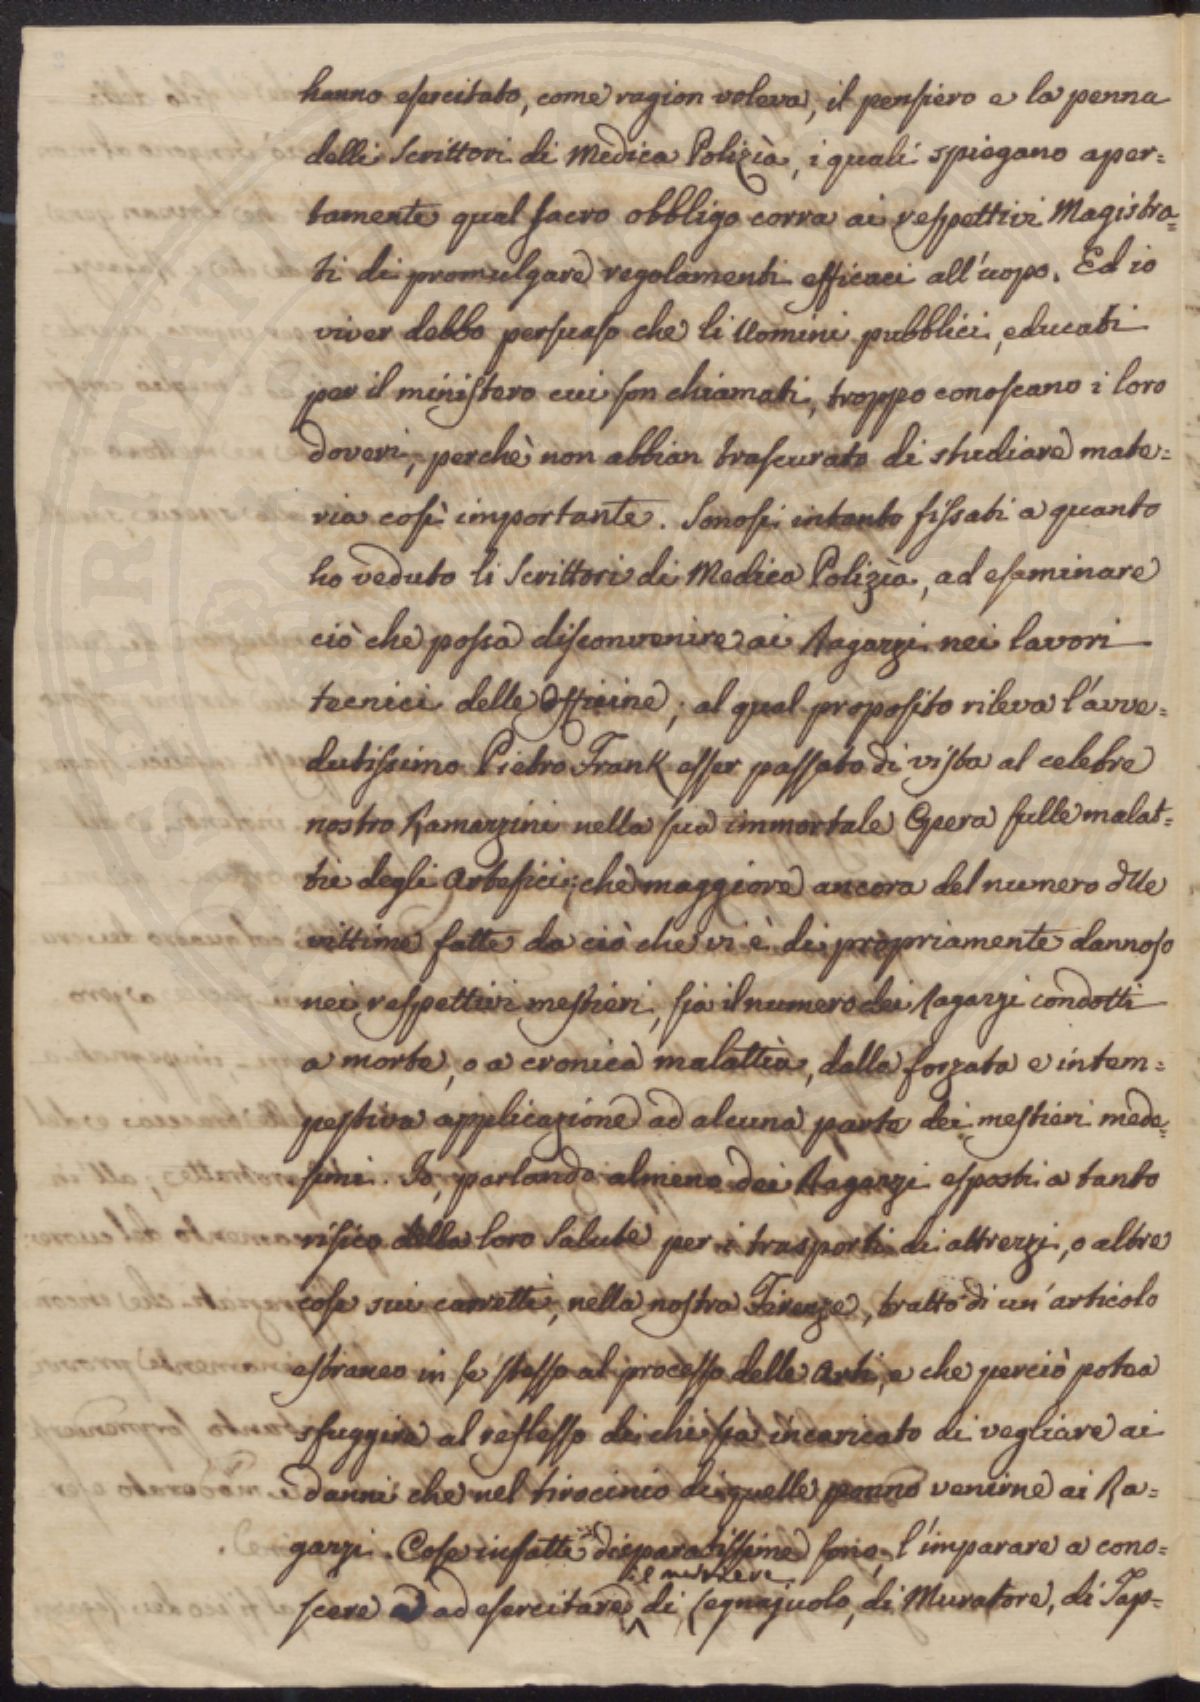 hanno esercitato, come ragion voleva, il pensiero e la penna
delli Scrittori di Medica Polizìa, i quali spiegano aper=
tamente qual sacro obbligo corra ai respettivi Magistra=
ti di promulgare regolamenti efficaci all'uopo. Ed io
viver debbo persuaso che li Uomini pubblici, educati
per il ministero cui son chiamati, troppo conoscano i loro
doveri, perchè non abbian trascurato di studiare mate=
ria così importante. Sonosi intanto fissati a quanto
ho veduto li Scrittori di Medica Polizìa, ad esaminare
ciò che possa disconvenire ai Ragazzi nei lavori
tecnici delle Officine; al qual proposito rileva l'avve=
dutissimo Pietro Frank esser passato di vista al celebre
nostro Ramazzini nella sua immortale Opera sulle malat=
tie degli Artefici; che maggiore ancora del numero dlle
vittime fatte da ciò che vi è di propriamente dannoso
nei respettivi mestieri, sia il numero dei Ragazzi condotti
a morte, o a cronica malattìa, dalla forzata e intem=
pestiva applicazione ad alcuna parte dei mestieri mede=
simi. Io, parlando almeno dei Ragazzi esposti a tanto
risico della loro Salute per i trasporti di attrezzi, o altre
cose sui carretti, nella nostra Firenze, tratto di un'articolo
estraneo in se stesso al processo delle Arti, e che perciò potea
sfuggire al reflesso di chi sia incaricato di vegliare ai
danni che nel tirocinio di quelle ponno venirne ai Ra=
gazzi. Cose infatti disparatissime sono, l'imparare a cono=
scere ad esercitare il mestiere di Legnajuolo, di Muratore, di Tap=